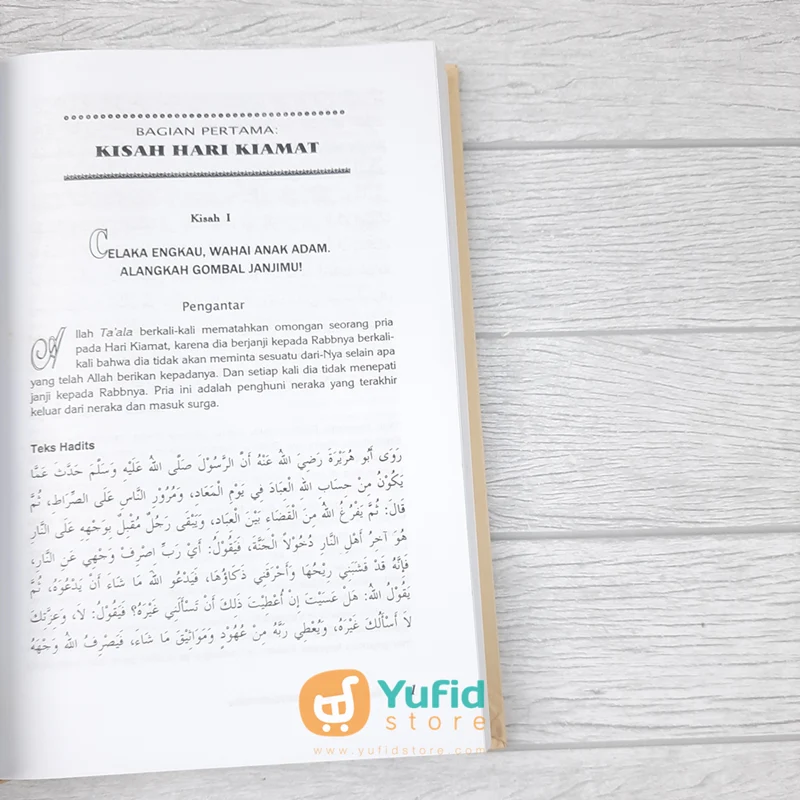 BAGIAN PERTAMA:
KISAH HARI KIAMAT
Kisah I
CELAKA ENGKAU, WAHAI ANAK ADAM.
ALANGKAH GOMBAL JANJIMU!
Pengantar
Allah Ta'ala berkali-kali mematahkan omongan seorang pria
pada Hari Kiamat, karena dia berjanji kepada Rabbnya berkali-
kali bahwa dia tidak akan meminta sesuatu dari-Nya selain apa
yang telah Allah berikan kepadanya. Dan setiap kali dia tidak menepati
janji kepada Rabbnya. Pria ini adalah penghuni neraka yang terakhir
keluar dari neraka dan masuk surga.
Teks Hadits
رَوَى أَبُو هُرَيْرَةَ رَضِيَ اللهُ عَنْهُ أَنَّ الرَّسُوْلَ صَلَّى اللهُ عَلَيْهِ وَسَلَّمَ حَدَّثَ عَمَّا
يَكُوْنُ مِنْ حِسَابِ اللهِ الْعِبَادَ فِي يَوْمِ الْمَعَادِ، وَمُرُوْرِ النَّاسِ عَلَى الصِّرَاطِ، ثُمَّ
قَالَ: ثُمَّ يَفْرُغُ اللهُ مِنَ الْقَضَاءِ بَيْنَ الْعِبَادِ، وَيَبْقَى رَجُلٌ مُقْبِلٌ بِوَجْهِهِ عَلَى النَّارِ
هُوَ آخِرُ أَهْلِ النَّارِ دُخُوْلاً الْجَنَّةَ، فَيَقُوْلُ: أَيْ رَبِّ اِصْرِفْ وَجْهِي عَنِ النَّارِ،
فَإِنَّهُ قَدْ قَشَبَنِي رِيْحُهَا وَأَحْرَقَنِي ذَكَاؤُهَا، فَيَدْعُو اللهَ مَا شَاءَ أَنْ يَدْعُوَهُ، ثُمَّ
يَقُوْلُ اللهُ: هَلْ عَسَيْتَ إِنْ أُعْطِيْتَ ذَلِكَ أَنْ تَسْأَلَنِي غَيْرَهُ؟ فَيَقُوْلُ: لاَ، وَعِزَّتِكَ
لاَ أَسْأَلُكَ غَيْرَهُ، وَيُعْطِي رَبَّهُ مِنْ عُهُوْدٍ وَمَوَاثِيْقَ مَا شَاءَ، فَيَصْرِفُ اللهُ وَجْهَهُ
1
Yufid
store
www.yufidstore.com